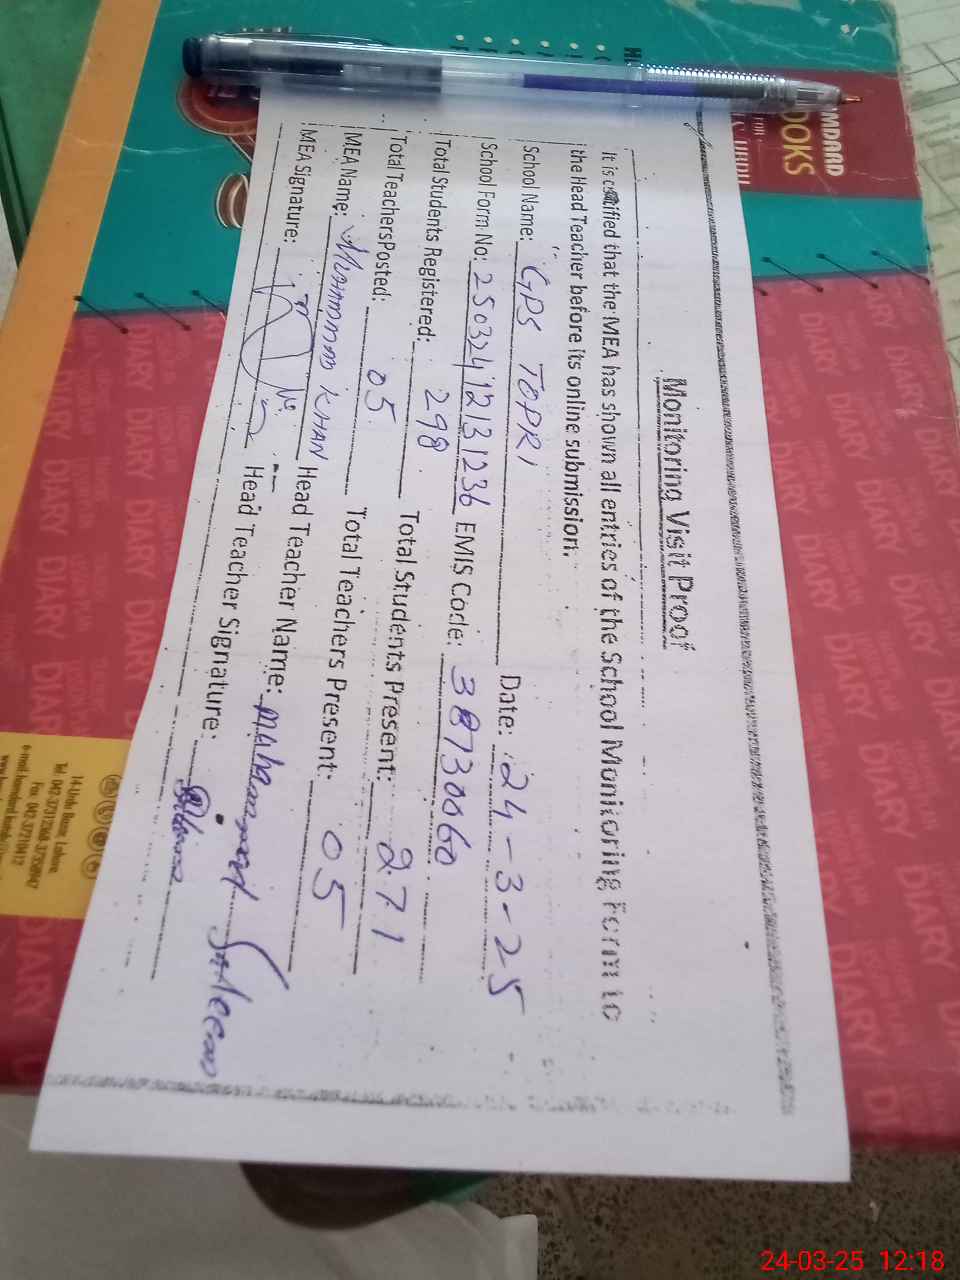 Monitoring Visit Proof
It is certified that the MEA has shown all entries of the School Monitoring Form to
the Head Teacher before its online submission.
School Name: GPS TOPRI Date: 24-3-25
School Form No: EMIS Code: 38730060
Total Students Registered: 298 Total Students Present: 271
Total Teachers Posted: 05 Total Teachers Present: 05
MEA Name: KHAN Head Teacher Name: Muhammad Saleem
MEA Signature: Head Teacher Signature:
HAMDARD
BOOKS
FOR
URDU
DIARY DIARY DIARY DIARY
14-Urdu Bazar, Lahore.
Tel: 042-37312368, 37358947
Fax: 042-37210412
24-03-25 12:18